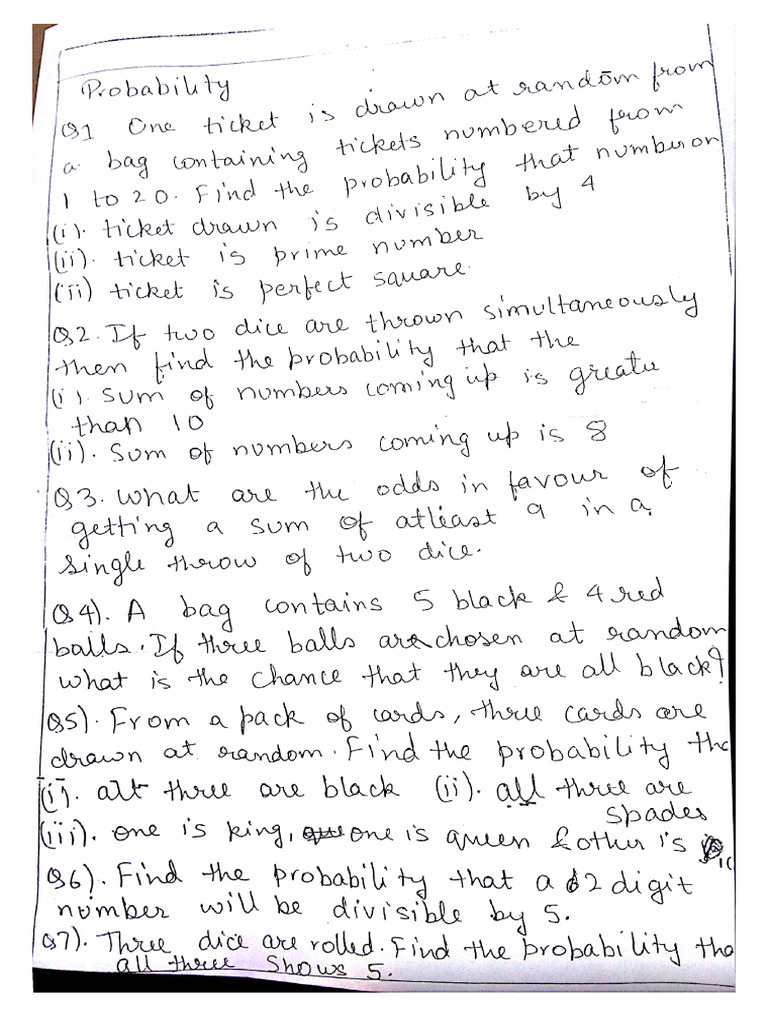 Probability
Q1 One ticket is drawn at random from
a bag containing tickets numbered from
1 to 20. Find the probability that number on
(i). ticket drawn is divisible by 4
(ii). ticket is prime number
(iii) ticket is perfect square.
Q2. If two dice are thrown simultaneously
then find the probability that the
(i). Sum of numbers coming up is greater
than 10
(ii). Sum of numbers coming up is 8
Q3. What are the odds in favour of
getting a sum of atleast 9 in a
single throw of two dice.
Q4). A bag contains 5 black & 4 red
balls. If three balls are chosen at random
what is the chance that they are all black?
Q5). From a pack of cards, three cards are
drawn at random. Find the probability tha
(i). all three are black (ii). all three are
spades
(iii). one is king, one is queen & other is
Q6). Find the probability that a 2 digit
number will be divisible by 5.
Q7). Three dice are rolled. Find the probability tha
all three shows 5.